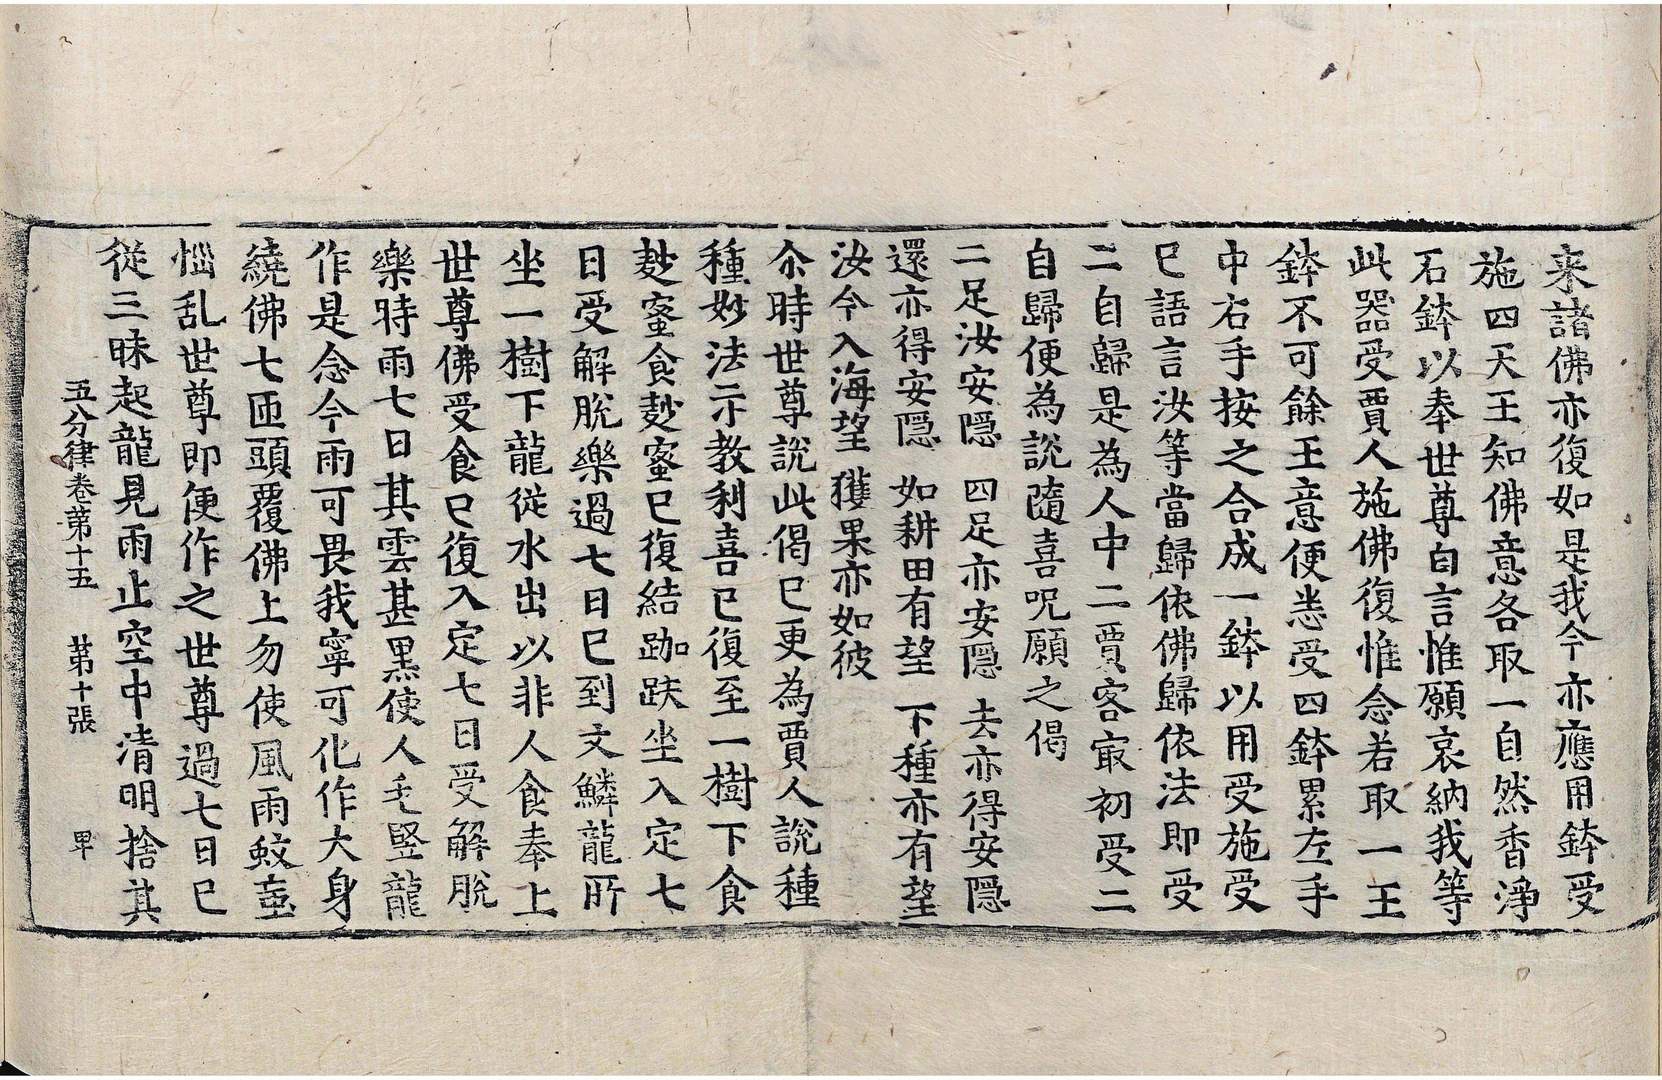 来諸佛亦復如是我今亦應用鉢受
施四天王知佛意各取一自然香淨
石鉢以奉世尊白言惟願哀納我等
此器受賈人施佛復惟念若取一王
鉢不可餘王意便悉受四鉢累左手
中右手按之合成一鉢以用受施受
已語言汝等當歸依佛歸依法即受
二自歸是為人中二賈客㝡初受二
自歸便為説隨喜呪願之偈
二足汝安隱 四足亦安隱 去亦得安隱
還亦得安隱 如耕田有望 下種亦有望
汝今入海望 獲果亦如彼
尒時世尊說此偈已更為賈人說種
種妙法示教利喜已復至一樹下食
麨蜜食麨蜜已復結跏趺坐入定七
日受解脫樂過七日已到文鱗龍所
坐一樹下龍從水出以非人食奉上
世尊佛受食已復入定七日受解脫
樂時雨七日其雲甚黑使人毛竪龍
作是念今雨可畏我寧可化作大身
繞佛七匝頭覆佛上勿使風雨蚊䖟
惱乱世尊即便作之世尊過七日已
從三昧起龍見雨止空中清明捨其
五分律卷苐十五 苐十張